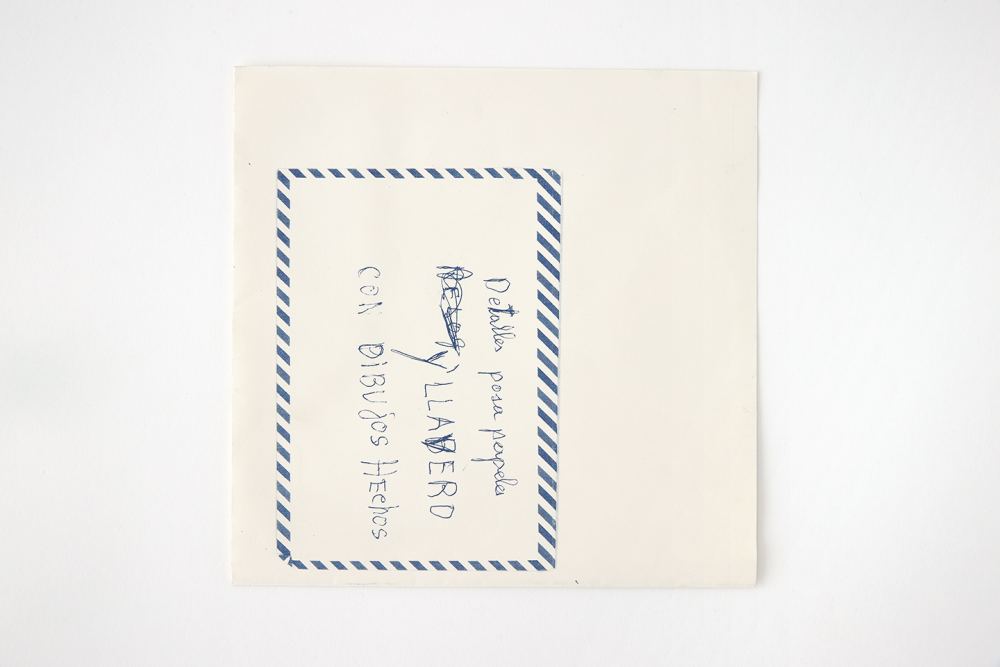 Detalles posa papeles
y LLAVERO
CON DIBUjOS HEchos